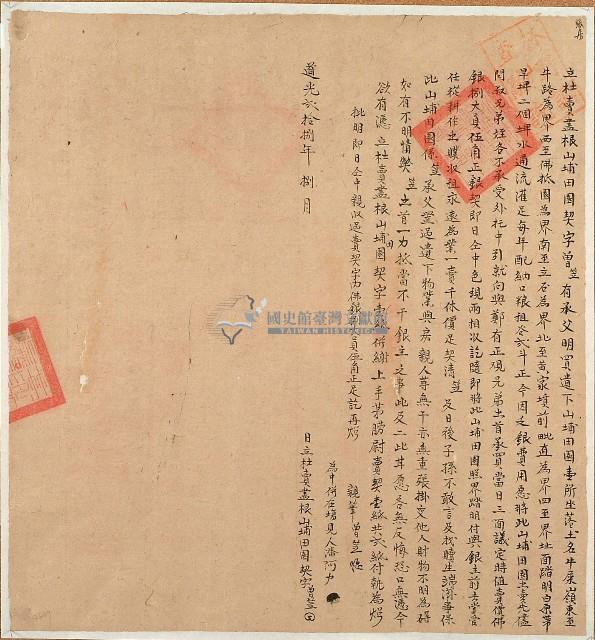 立杜賣盡根山埔田園契字曾笠有承父明買遺下山埔田園壹所坐落土名牛屎嶺東至
牛路為界西至佛抵園為界南至立石為界北至黃家墳前毗直為界四至界址面踏明白原帶
埤二個埤水通流灌足每年配納口粮租谷弍斗正今因乏銀費用愿將此山埔田園出賣先儘
問叔兄弟姪各不承受外托中引就向與鄭有正觀兄弟出首承買當日三面議定時值賣價佛
銀捌大員伍角正銀契即日仝中色現兩相收訖隨即將此山埔田園照界踏明付與銀主前去掌管
任從耕作出贌收租永遠為業一賣千休價足契清笠及日後子孫不敢言及找贖生端滋事保
此山埔田園係笠承父置過遺下物業與房親人等無干亦無重張掛交他人財物不明為碍
如有不明情弊笠出首一力抵當不干銀主之事此及二比甘愿各無反悔恐口無憑今
欲有憑立杜賣盡根山埔田園契字壹紙併繳上手賣契壹紙共紙付執為炤
批明即日仝中親收過賣契字內佛銀捌大員伍角正足訖再炤
親筆曾笠
為中併在場見人潘阿力
道光弍拾捌年 捌月 日立杜賣盡根山埔田園契字曾笠
國史館臺灣文獻館
TAIWAN HISTORICA